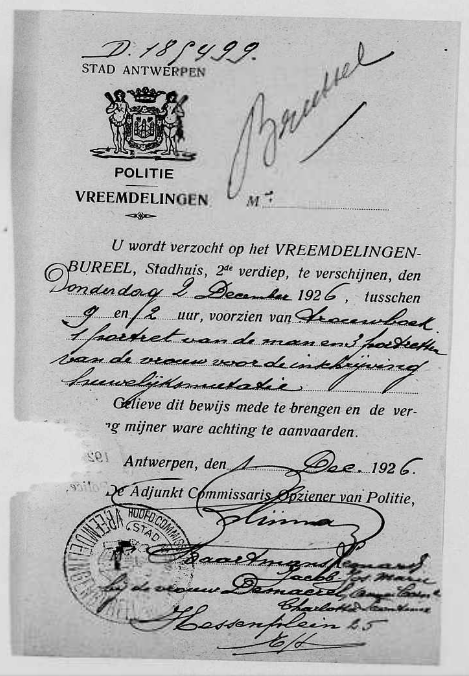 D. 185499.
STAD ANTWERPEN
Brussel
POLITIE
VREEMDELINGEN
M
U wordt verzocht op het VREEMDELINGEN-
BUREEL, Stadhuis, 2de verdiep, te verschijnen, den
Donderdag 2 December 1926, tusschen
9 en 12 uur, voorzien van trouwboek
1 portret van de man en 3 portretten
van de vrouw voor de inschrijving
huwelijksmutatie
Gelieve dit bewijs mede te brengen en de ver-
g mijner ware achting te aanvaarden.
Antwerpen, den 1 Dec. 1926.
De Adjunkt Commissaris Opziener van Politie,
HOOFD COMMIS
STAD
VREEMDELINGEN
Jacob Jos Marie
bij de vrouw
Charlotte Leontine
Hessenplein 25